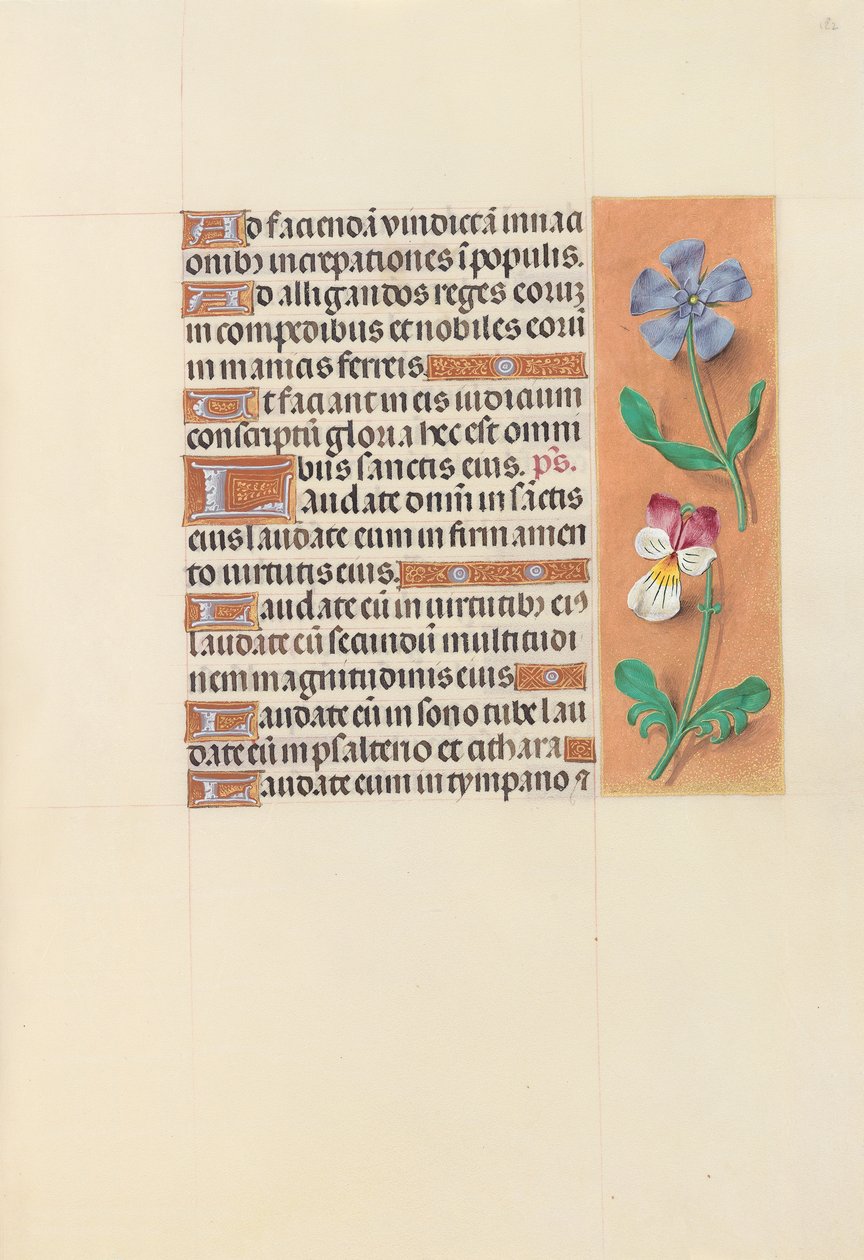 182
Ad faciendā vindictā in naci
onibꝫ increpationes ī populis.
Ad alligandos reges eoruꝫ
in compedibus et nobiles eorū
in manicis ferreis.
Ut faciant in eis iudicium
conscriptū gloria hec est omni
bus sanctis eius. ps̄.
Laudate dnm̄ in sāctis
eius laudate eum in firmamen
to uirtutis eius.
Laudate eū in uirtutibꝫ eiꝰ
laudate eū secundū multitudi
nem magnitudinis eius
Laudate eū in sono tube lau
date eū in psalterio et cithara
Laudate eum in tympano ⁊